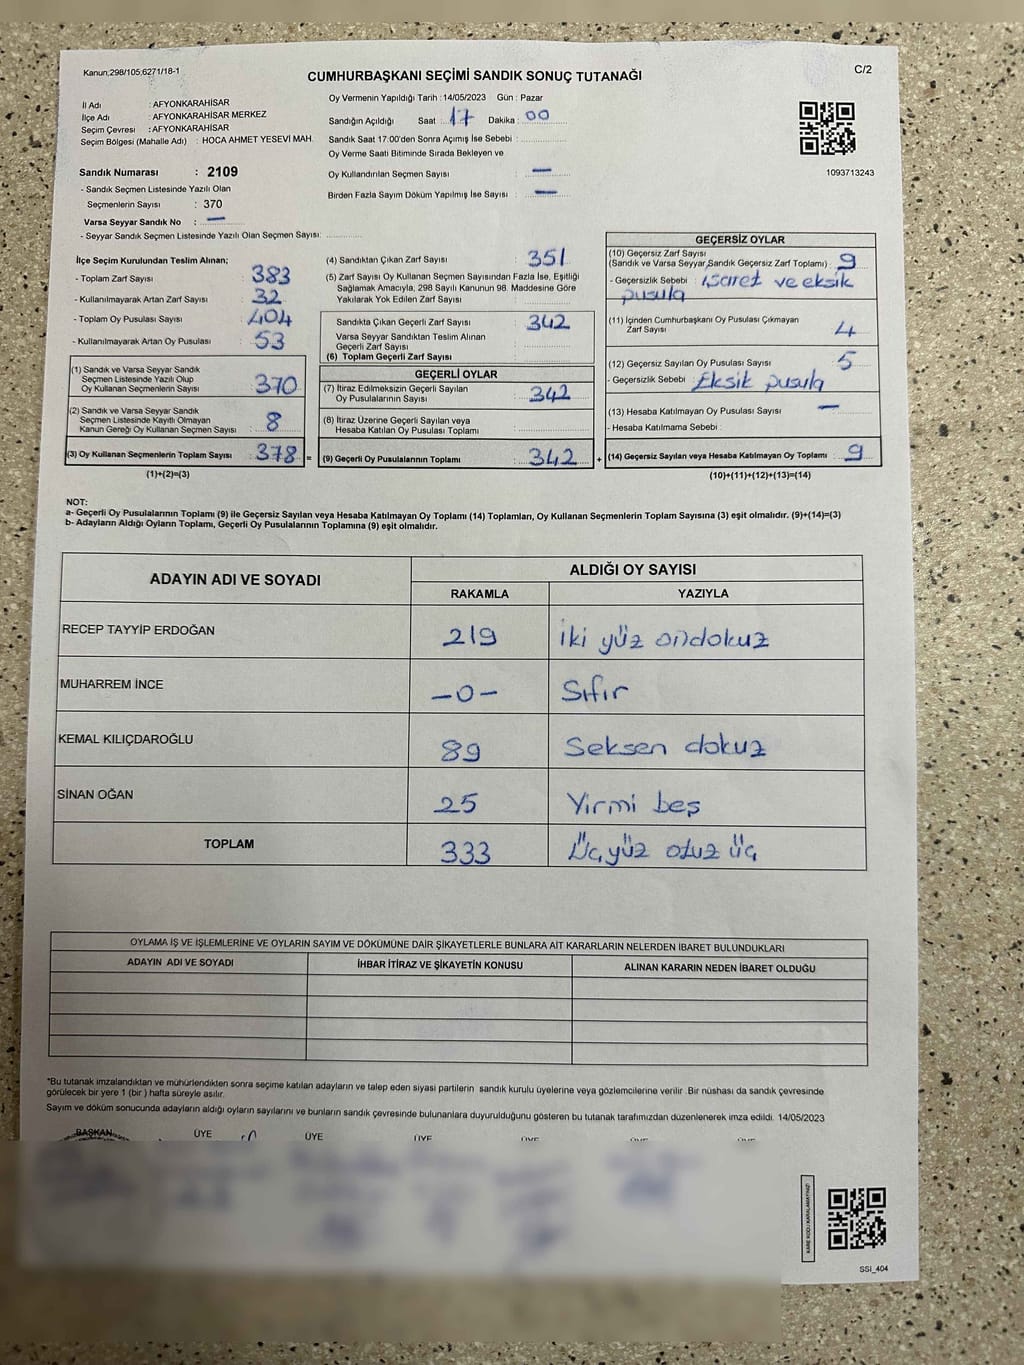 Kanun;298/105;6271/18-1
CUMHURBAŞKANI SEÇİMİ SANDIK SONUÇ TUTANAĞI
C/2
İl Adı : AFYONKARAHİSAR
İlçe Adı : AFYONKARAHİSAR MERKEZ
Seçim Çevresi : AFYONKARAHİSAR
Seçim Bölgesi (Mahalle Adı) : HOCA AHMET YESEVİ MAH.
Oy Vermenin Yapıldığı Tarih : 14/05/2023 Gün : Pazar
Sandığın Açıldığı Saat : 17 Dakika : 00
Sandık Saat 17:00'den Sonra Açımış İse Sebebi :
Oy Verme Saati Bitiminde Sırada Bekleyen ve
Oy Kullandırılan Seçmen Sayısı : —
Birden Fazla Sayım Döküm Yapılmış İse Sayısı : —
1093713243
Sandık Numarası : 2109
- Sandık Seçmen Listesinde Yazılı Olan
Seçmenlerin Sayısı : 370
Varsa Seyyar Sandık No : —
- Seyyar Sandık Seçmen Listesinde Yazılı Olan Seçmen Sayısı:
İlçe Seçim Kurulundan Teslim Alınan;
- Toplam Zarf Sayısı : 383
- Kullanılmayarak Artan Zarf Sayısı : 32
- Toplam Oy Pusulası Sayısı : 404
- Kullanılmayarak Artan Oy Pusulası : 53
(1) Sandık ve Varsa Seyyar Sandık
Seçmen Listesinde Yazılı Olup
Oy Kullanan Seçmenlerin Sayısı : 370
(2) Sandık ve Varsa Seyyar Sandık
Seçmen Listesinde Kayıtlı Olmayan
Kanun Gereği Oy Kullanan Seçmen Sayısı : 8
(3) Oy Kullanan Seçmenlerin Toplam Sayısı : 378 =
(1)+(2)=(3)
(4) Sandıktan Çıkan Zarf Sayısı : 351
(5) Zarf Sayısı Oy Kullanan Seçmen Sayısından Fazla İse, Eşitliği
Sağlamak Amacıyla, 298 Sayılı Kanunun 98. Maddesine Göre
Yakılarak Yok Edilen Zarf Sayısı :
Sandıkta Çıkan Geçerli Zarf Sayısı : 342
Varsa Seyyar Sandıktan Teslim Alınan
Geçerli Zarf Sayısı :
(6) Toplam Geçerli Zarf Sayısı :
GEÇERLİ OYLAR
(7) İtiraz Edilmeksizin Geçerli Sayılan
Oy Pusulalarının Sayısı : 342
(8) İtiraz Üzerine Geçerli Sayılan veya
Hesaba Katılan Oy Pusulası Toplamı :
(9) Geçerli Oy Pusulalarının Toplamı : 342 +
GEÇERSİZ OYLAR
(10) Geçersiz Zarf Sayısı
(Sandık ve Varsa Seyyar Sandık Geçersiz Zarf Toplamı) : 9
- Geçersizlik Sebebi : işaret ve eksik
pusula
(11) İçinden Cumhurbaşkanı Oy Pusulası Çıkmayan
Zarf Sayısı : 4
(12) Geçersiz Sayılan Oy Pusulası Sayısı : 5
- Geçersizlik Sebebi : Eksik pusula
(13) Hesaba Katılmayan Oy Pusulası Sayısı : —
- Hesaba Katılmama Sebebi :
(14) Geçersiz Sayılan veya Hesaba Katılmayan Oy Toplamı : 9
(10)+(11)+(12)+(13)=(14)
NOT:
a- Geçerli Oy Pusulalarının Toplamı (9) ile Geçersiz Sayılan veya Hesaba Katılmayan Oy Toplamı (14) Toplamları, Oy Kullanan Seçmenlerin Toplam Sayısına (3) eşit olmalıdır. (9)+(14)=(3)
b- Adayların Aldığı Oyların Toplamı, Geçerli Oy Pusulalarının Toplamına (9) eşit olmalıdır.
ADAYIN ADI VE SOYADI
ALDIĞI OY SAYISI
RAKAMLA YAZIYLA
RECEP TAYYİP ERDOĞAN 219 iki yüz ondokuz
MUHARREM İNCE -0- Sıfır
KEMAL KILIÇDAROĞLU 89 Seksen dokuz
SİNAN OĞAN 25 Yirmi beş
TOPLAM 333 Üçyüz otuz üç
OYLAMA İŞ VE İŞLEMLERİNE VE OYLARIN SAYIM VE DÖKÜMÜNE DAİR ŞİKAYETLERLE BUNLARA AİT KARARLARIN NELERDEN İBARET BULUNDUKLARI
ADAYIN ADI VE SOYADI İHBAR İTİRAZ VE ŞİKAYETİN KONUSU ALINAN KARARIN NEDEN İBARET OLDUĞU
*Bu tutanak imzalandıktan ve mühürlendikten sonra seçime katılan adayların ve talep eden siyasi partilerin sandık kurulu üyelerine veya gözlemcilerine verilir .Bir nüshası da sandık çevresinde
görülecek bir yere 1 (bir ) hafta süreyle asılır.
Sayım ve döküm sonucunda adayların aldığı oyların sayılarını ve bunların sandık çevresinde bulunanlara duyurulduğunu gösteren bu tutanak tarafımızdan düzenlenerek imza edildi. 14/05/2023
BAŞKAN ÜYE ÜYE ÜYE ÜYE
KARE KODU KARALAMAYINIZ!
SSI_404